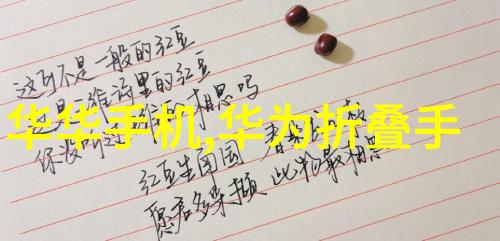 这可不是一般的红豆
这是 海里的红豆
你没听过 相思吗
华华手机,华为折叠手
红豆生南国 春来
愿君多采撷 此物最相思